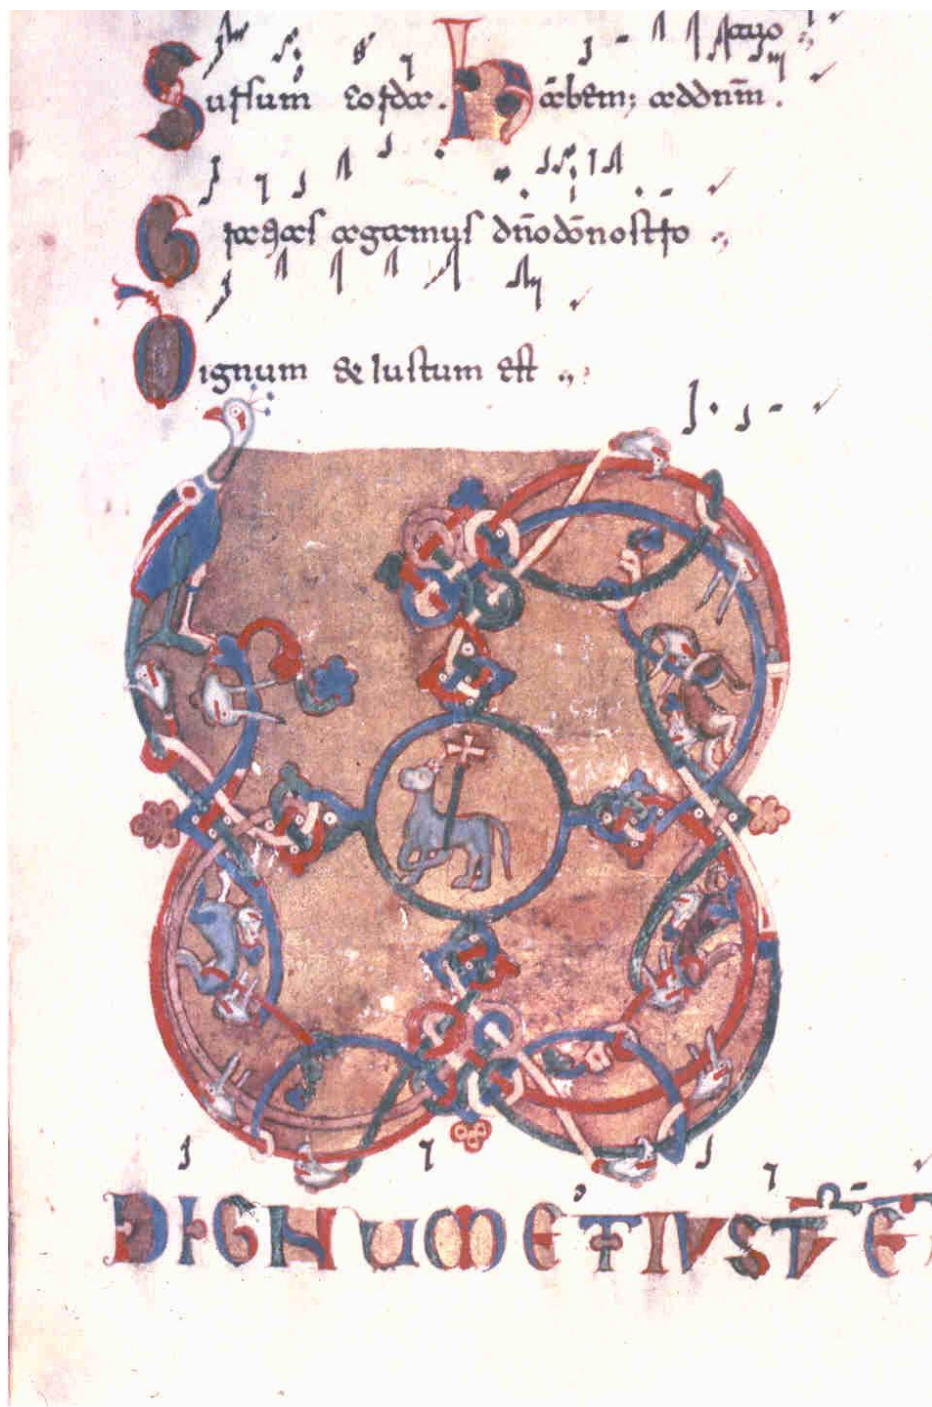 Sursum corda. Habem; ad dn̄m.
Gratias agamus dn̄o dō nostro
Dignum & iustum est
DIGNUM ET IVSTV̄ Ē